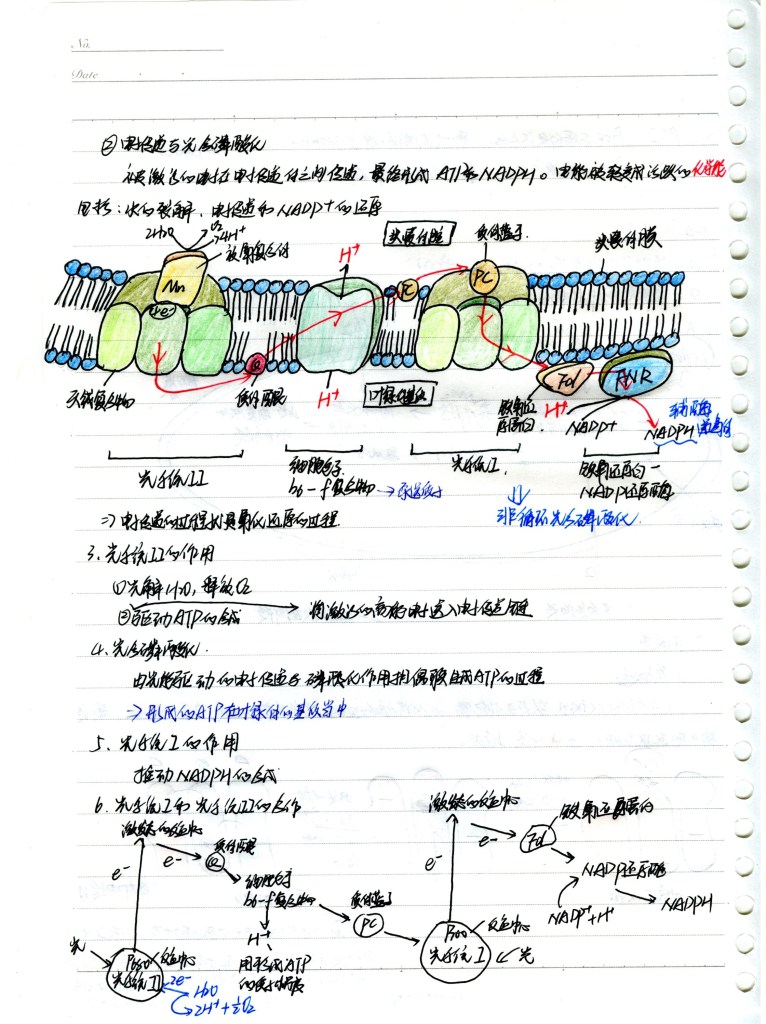 No.
Date
② 电子传递与光合磷酸化
被激发的电子在电子传递体之间传递,最终形成 ATP和NADPH。电能被转变成活跃的化学能
包括:水的裂解、电子传递和NADP+的还原
2H2O
O2
4H+
H+
类囊体腔
质体蓝素
类囊体膜
放氧复合体
Mn
PC
PC
4e-
Q
Fd
FNR
天线复合物
质体醌
H+
叶绿体基质
H+
NADP+
NADPH
光系统II
细胞色素
b6-f复合物
光系统I
铁氧还蛋白-
NADP还原酶
⇒ 电子传递的过程就是氧化还原的过程
非循环光合磷酸化
3. 光系统II的作用
①光解H2O,释放O2
②驱动ATP的合成 → 将激发的高能电子送入电子传递链
4. 光合磷酸化
由光能驱动的电子传递与磷酸化作用相偶联生成ATP的过程
⇒ 形成的ATP在叶绿体的基质当中
5. 光系统I的作用
推动NADPH的合成
6. 光系统I和光系统II的合作
激发态的反应中心
激发态的反应中心
铁氧还蛋白
e-
e-
质体醌
Q
e-
e-
Fd
细胞色素
b6-f复合物
质体蓝素
PC
NADP还原酶
NADP+ + H+
NADPH
光
P680
反应中心
光系统II
H+
用形成ATP
P700
反应中心
光系统I
光
2e-
H2O
2H+ + ½O2